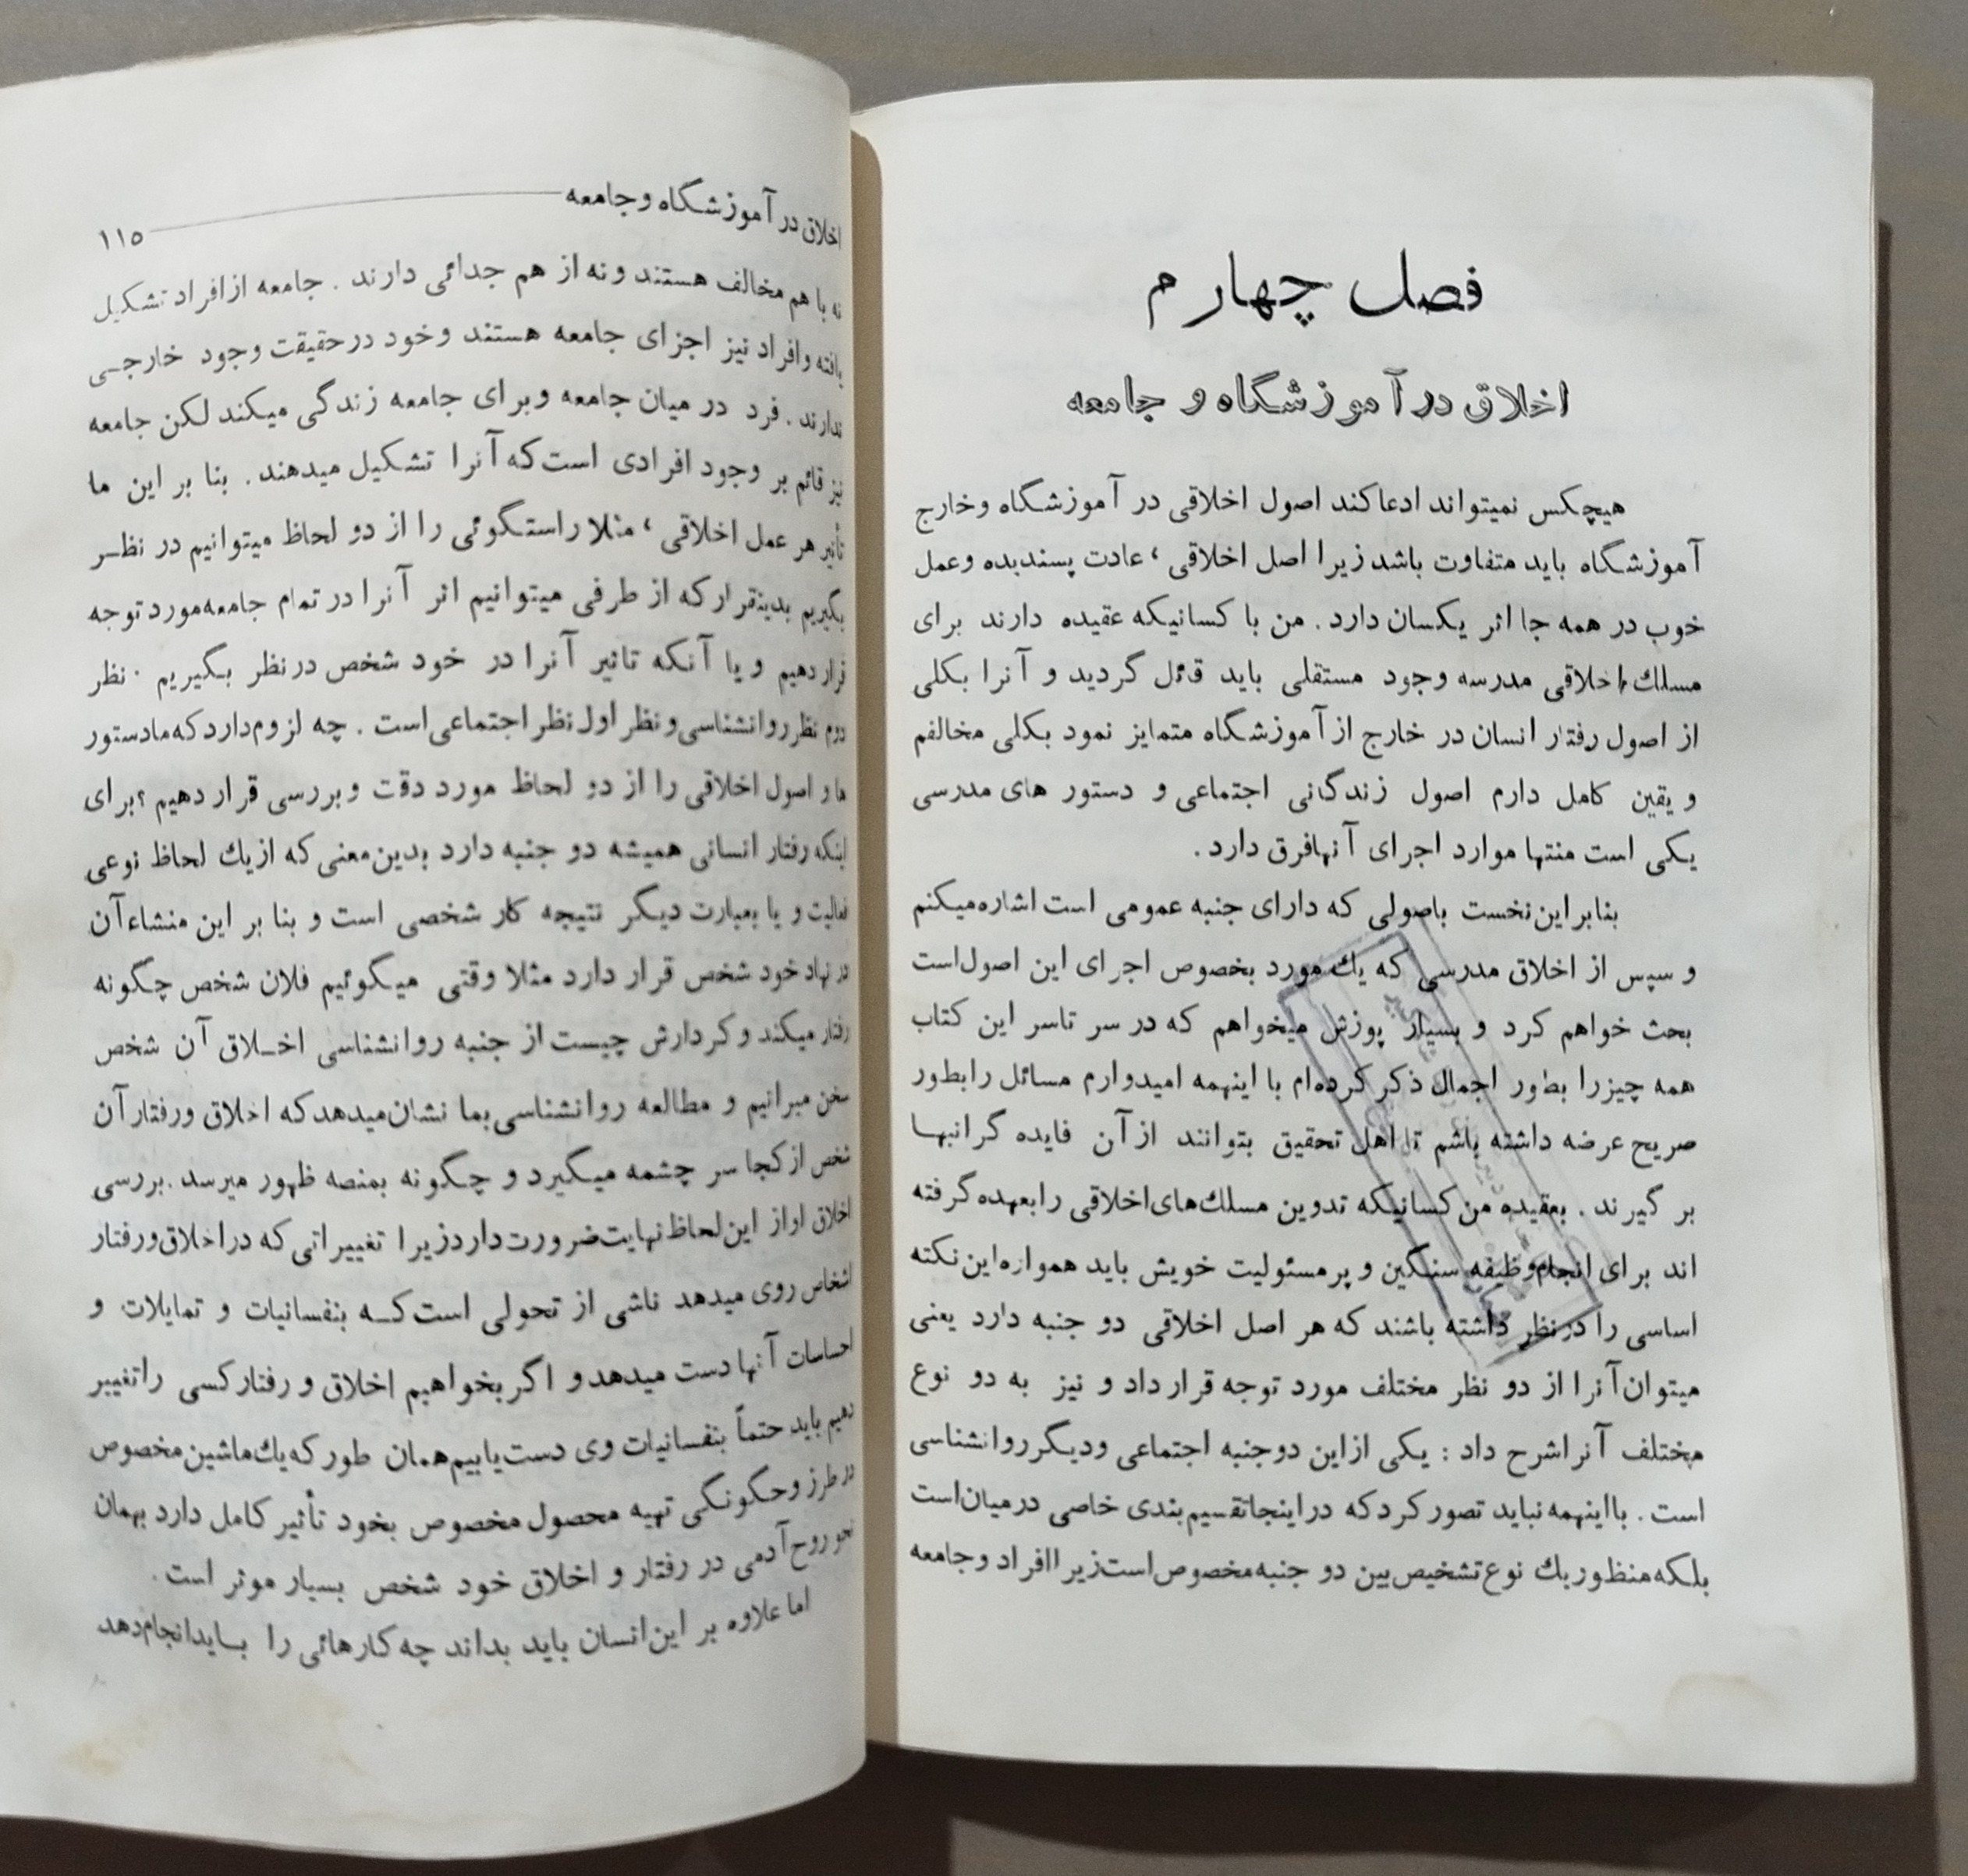 فصل چهارم
اخلاق در آموزشگاه و جامعه
هیچکس نمیتواند ادعا کند اصول اخلاقی در آموزشگاه و خارج
آموزشگاه باید متفاوت باشد زیرا اصل اخلاقی ، عادت پسندیده و عمل
خوب در همه جا اثر یکسان دارد . من با کسانیکه عقیده دارند برای
مسلك اخلاقی مدرسه وجود مستقلی باید قائل گردید و آنرا بکلی
از اصول رفتار انسان در خارج از آموزشگاه متمایز نمود بکلی مخالفم
و یقین کامل دارم اصول زندگانی اجتماعی و دستور های مدرسی
یکی است منتها موارد اجرای آنها فرق دارد .
بنابراین نخست باصولی که دارای جنبه عمومی است اشاره میکنم
و سپس از اخلاق مدرسی که یك مورد بخصوص اجرای این اصول است
بحث خواهم کرد و بسیار پوزش میخواهم که در سر تاسر این کتاب
همه چیز را بطور اجمال ذکر کرده‌ام با اینهمه امیدوارم مسائل را بطور
صریح عرضه داشته باشم تا اهل تحقیق بتوانند از آن فایده گرانبها
بر گیرند . بعقیده من کسانیکه تدوین مسلك های اخلاقی را بعهده گرفته
اند برای انجام وظیفه سنگین و پر مسئولیت خویش باید همواره این نکته
اساسی را در نظر داشته باشند که هر اصل اخلاقی دو جنبه دارد یعنی
میتوان آنرا از دو نظر مختلف مورد توجه قرار داد و نیز به دو نوع
مختلف آنرا شرح داد : یکی از این دو جنبه اجتماعی و دیگر روانشناسی
است . با اینهمه نباید تصور کرد که در اینجا تقسیم بندی خاصی در میان است
بلکه منظور یك نوع تشخیص بین دو جنبه مخصوص است زیرا افراد و جامعه
اخلاق در آموزشگاه و جامعه ۱۱۵
نه با هم مخالف هستند و نه از هم جدائی دارند . جامعه از افراد تشکیل
یافته و افراد نیز اجزای جامعه هستند و خود در حقیقت وجود خارجی
ندارند . فرد در میان جامعه و برای جامعه زندگی میکند لکن جامعه
نیز قائم بر وجود افرادی است که آنرا تشکیل میدهند . بنا بر این ما
تأثیر هر عمل اخلاقی ، مثلا راستگوئی را از دو لحاظ میتوانیم در نظر
بگیریم بدینقرار که از طرفی میتوانیم اثر آنرا در تمام جامعه مورد توجه
قرار دهیم و یا آنکه تاثیر آنرا در خود شخص در نظر بگیریم . نظر
دوم نظر روانشناسی و نظر اول نظر اجتماعی است . چه لزوم دارد که ما دستور
ها و اصول اخلاقی را از دو لحاظ مورد دقت و بررسی قرار دهیم ؟ برای
اینکه رفتار انسانی همیشه دو جنبه دارد بدین معنی که از یك لحاظ نوعی
فعالیت و یا بعبارت دیگر نتیجه کار شخصی است و بنا بر این منشاء آن
در نهاد خود شخص قرار دارد مثلا وقتی میگوئیم فلان شخص چگونه
رفتار میکند و کردارش چیست از جنبه روانشناسی اخلاق آن شخص
سخن میرانیم و مطالعه روانشناسی بما نشان میدهد که اخلاق و رفتار آن
شخص از کجا سر چشمه میگیرد و چگونه بمنصه ظهور میرسد . بررسی
اخلاق او از این لحاظ نهایت ضرورت دارد زیرا تغییراتی که در اخلاق و رفتار
اشخاص روی میدهد ناشی از تحولی است که بنفسانیات و تمایلات و
احساسات آنها دست میدهد و اگر بخواهیم اخلاق و رفتار کسی را تغییر
دهیم باید حتماً بنفسانیات وی دست یابیم همان طور که یك ماشین مخصوص
در طرز و چگونگی تهیه محصول مخصوص بخود تأثیر کامل دارد بهمان
نحو روح آدمی در رفتار و اخلاق خود شخص بسیار موثر است .
اما علاوه بر این انسان باید بداند چه کارهائی را باید انجام دهد